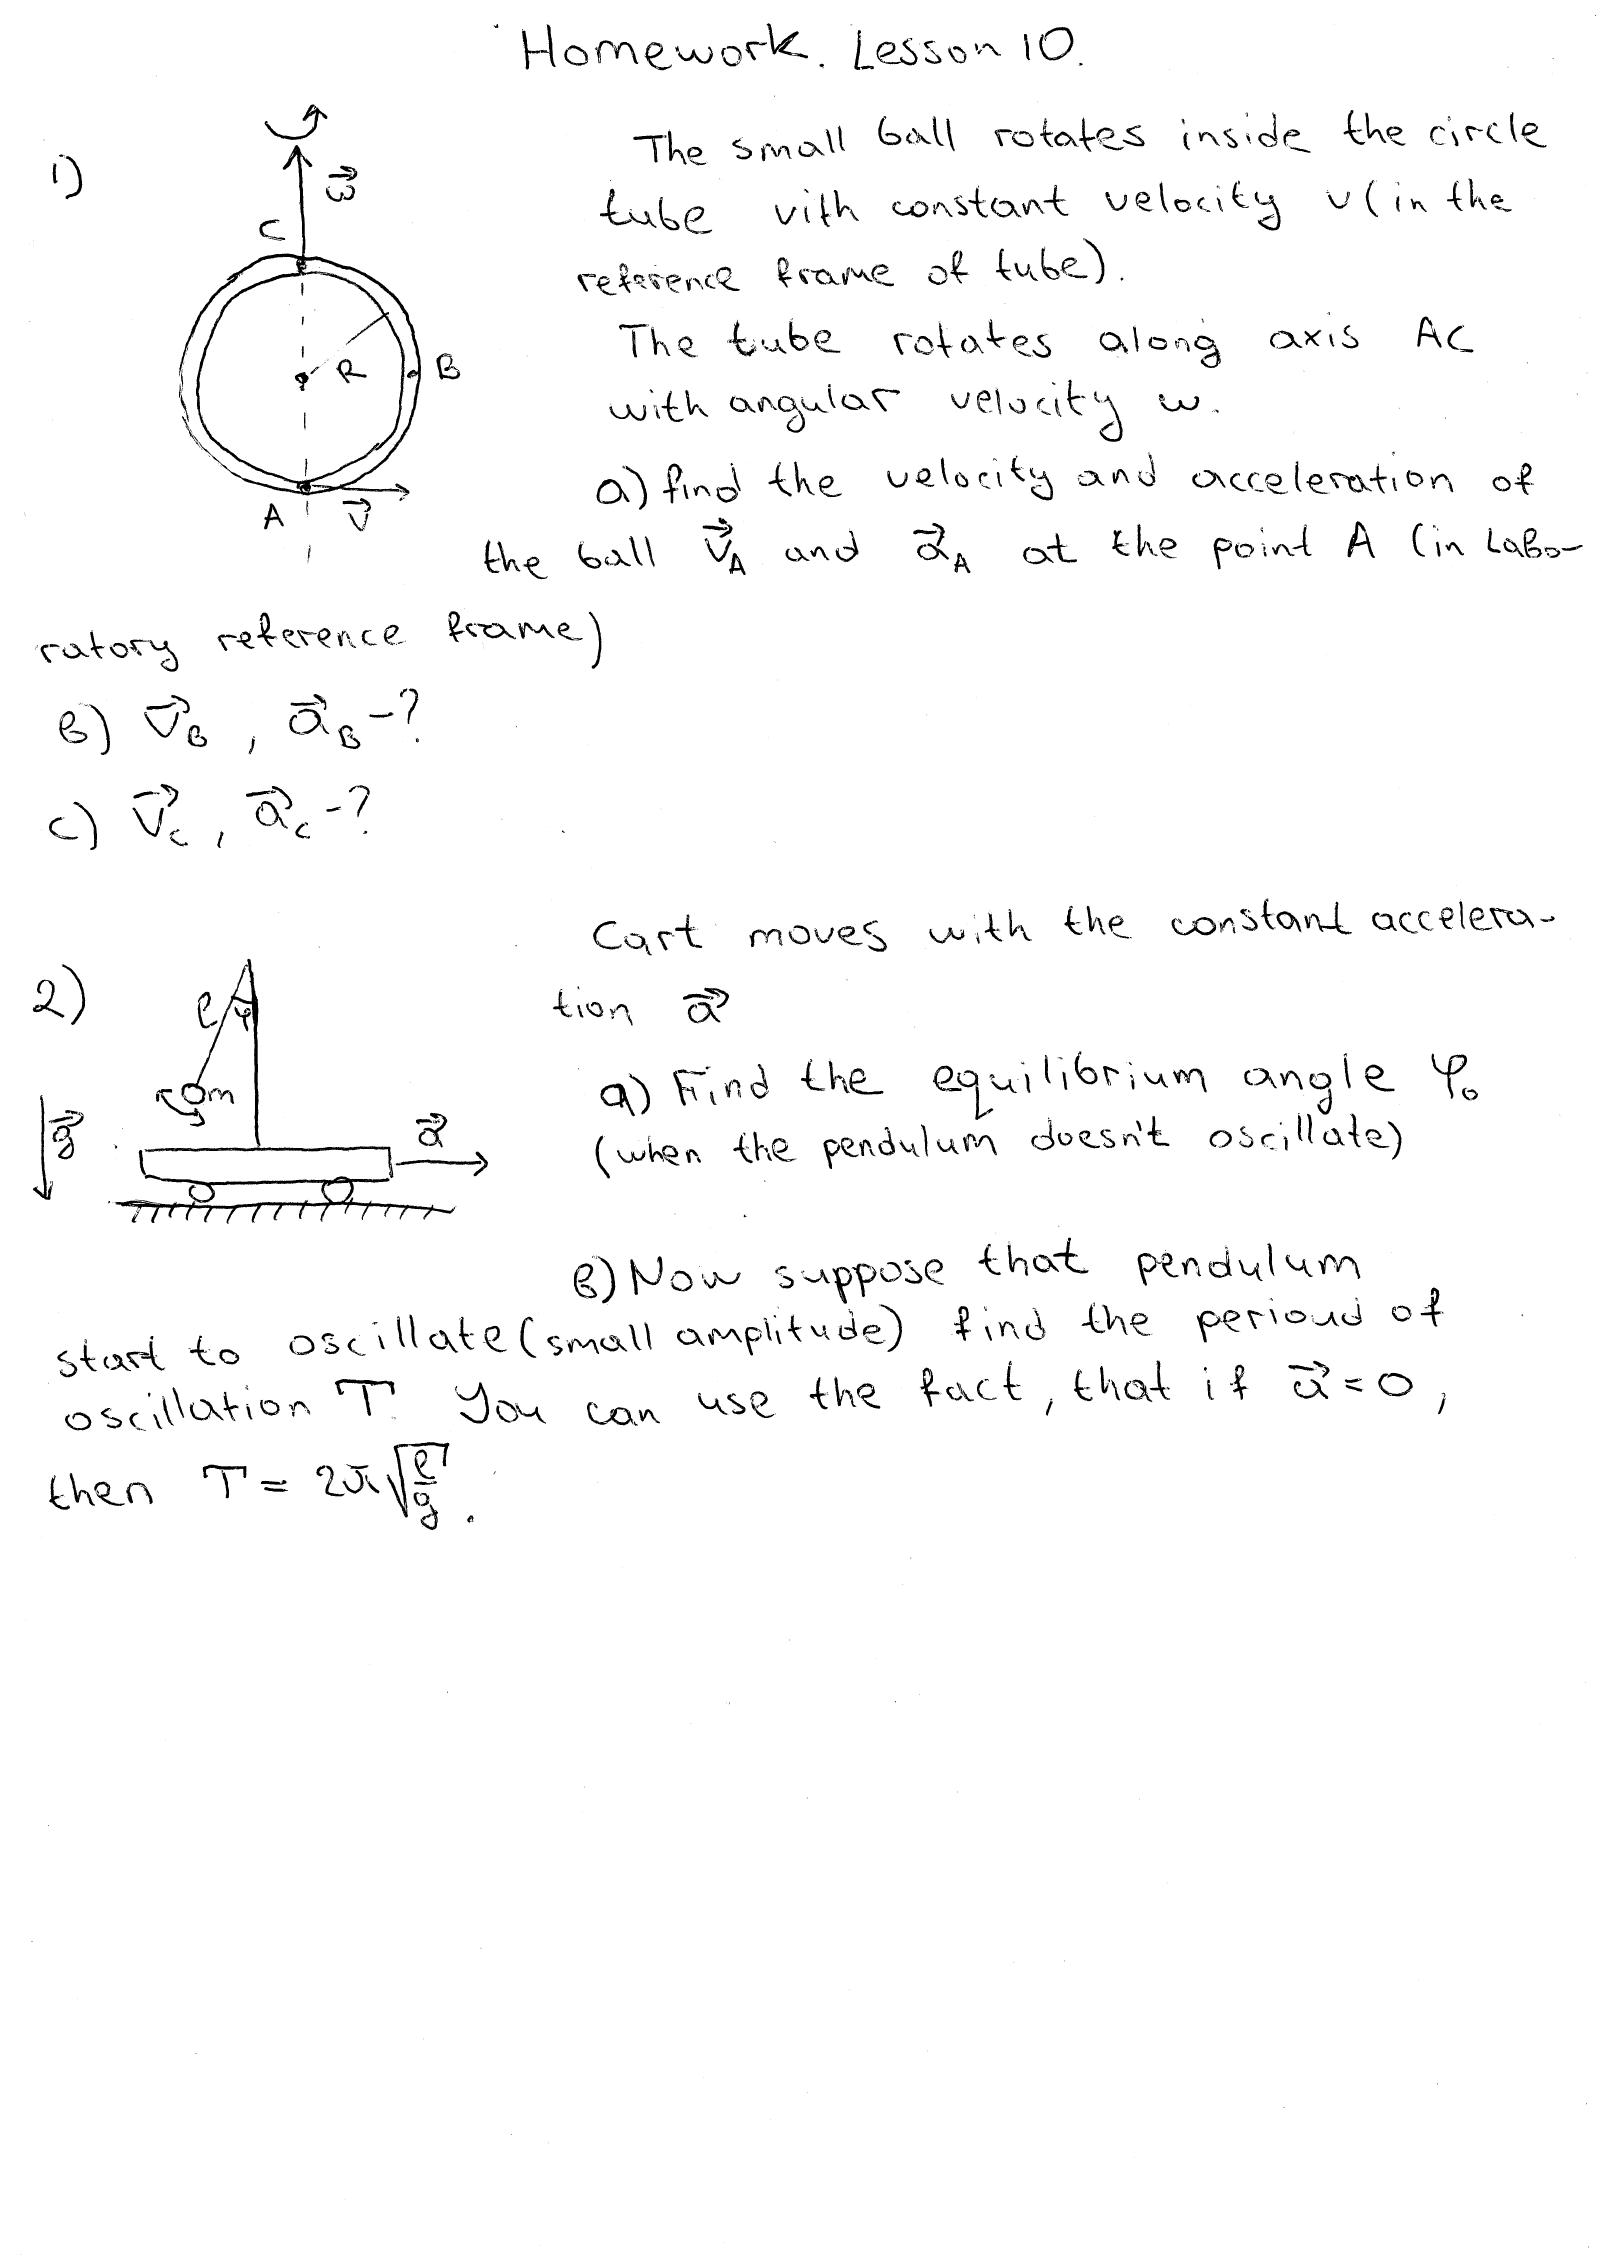 Homework. Lesson 10.
1)
ω⃗
C
R
B
A
v⃗
The small ball rotates inside the circle
tube vith constant velocity v (in the
reference frame of tube).
The tube rotates along axis AC
with angular velocity w.
a) find the velocity and acceleration of
the ball V⃗_A and a⃗_A at the point A (in Labo-
ratory reference frame)
b) V⃗_B, a⃗_B -?
c) V⃗_C, a⃗_C -?
2)
ℓ
φ
m
g⃗
a⃗
Cart moves with the constant accelera-
tion a⃗
a) Find the equilibrium angle φ₀
(when the pendulum doesn't oscillate)
b) Now suppose that pendulum
start to oscillate (small amplitude) find the perioud of
oscillation T. You can use the fact, that if a⃗ = 0,
then T = 2π√(ℓ/g).